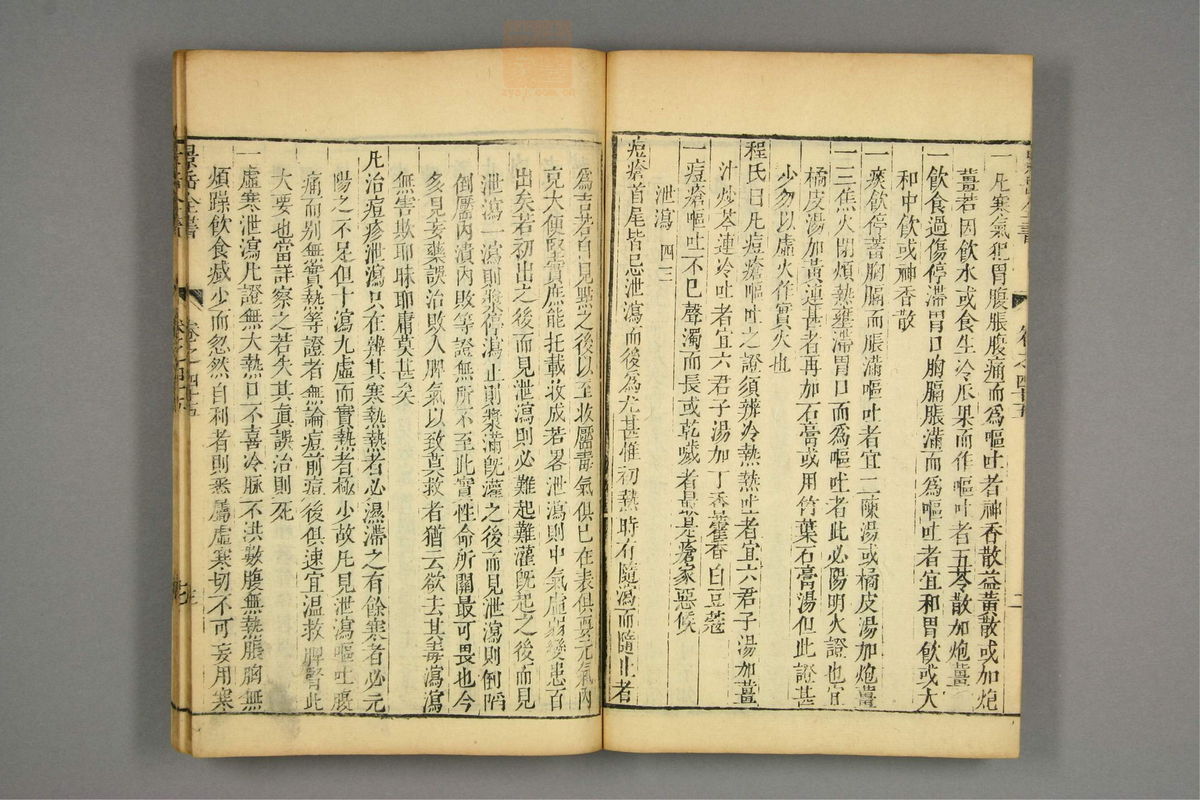 一凡寒氣犯胃腹脹腹痛而為嘔吐者神香散益黃散或加炮
薑若因飲水或食生冷瓜果而作嘔吐者五苓散加炮薑
一飲食過傷停滯胃口胸膈脹滿而為嘔吐者宜和胃飲或大
和中飲或神香散
一痰飲停蓄胸膈而脹滿嘔吐者宜二陳湯或橘皮湯加炮薑
一三焦火閉煩熱壅滯胃口而為嘔吐者此必陽明火證也宜
橘皮湯加黃連甚者再加石膏或用竹葉石膏湯但此證甚
少勿以虛火作實火也
程氏曰凡痘瘡嘔吐之證須辨冷熱熱吐者宜六君子湯加薑
汁炒芩連冷吐者宜六君子湯加丁香藿香白豆蔻
一痘瘡嘔吐不已聲濁而長或乾噦者最是瘡家惡候
泄瀉 四三
痘瘡首尾皆忌泄瀉而後為尤甚惟初熱時有隨瀉而隨止者
為吉若自見點之後以至收靨毒氣俱已在表俱要元氣內
充大便堅實庶能托載收成若畧泄瀉則中氣虛弱變患百
出矣若初出之後而見泄瀉則必難起難灌旣起之後而見
泄瀉一瀉則漿停瀉止則漿滿旣灌之後而見泄瀉則倒陷
倒靨內潰內敗等證無所不至此實性命所關最可畏也今
多見妄藥誤治敗人脾氣以致莫救者猶云欲去其毒瀉瀉
無害欺耶昧耶庸莫甚矣
凡治痘疹泄瀉只在辨其寒熱熱者必濕滯之有餘寒者必元
陽之不足但十瀉九虛而實熱者極少故凡見泄瀉嘔吐腹
痛而別無實熱等證者無論痘前痘後俱速宜溫救脾腎此
大要也當詳察之若失其眞誤治則死
一虛寒泄瀉凡證無大熱口不喜冷脉不洪數腹無熱脹胸無
煩躁飲食減少而忽然自利者則悉屬虛寒切不可妄用寒
景岳全書
卷之四十五